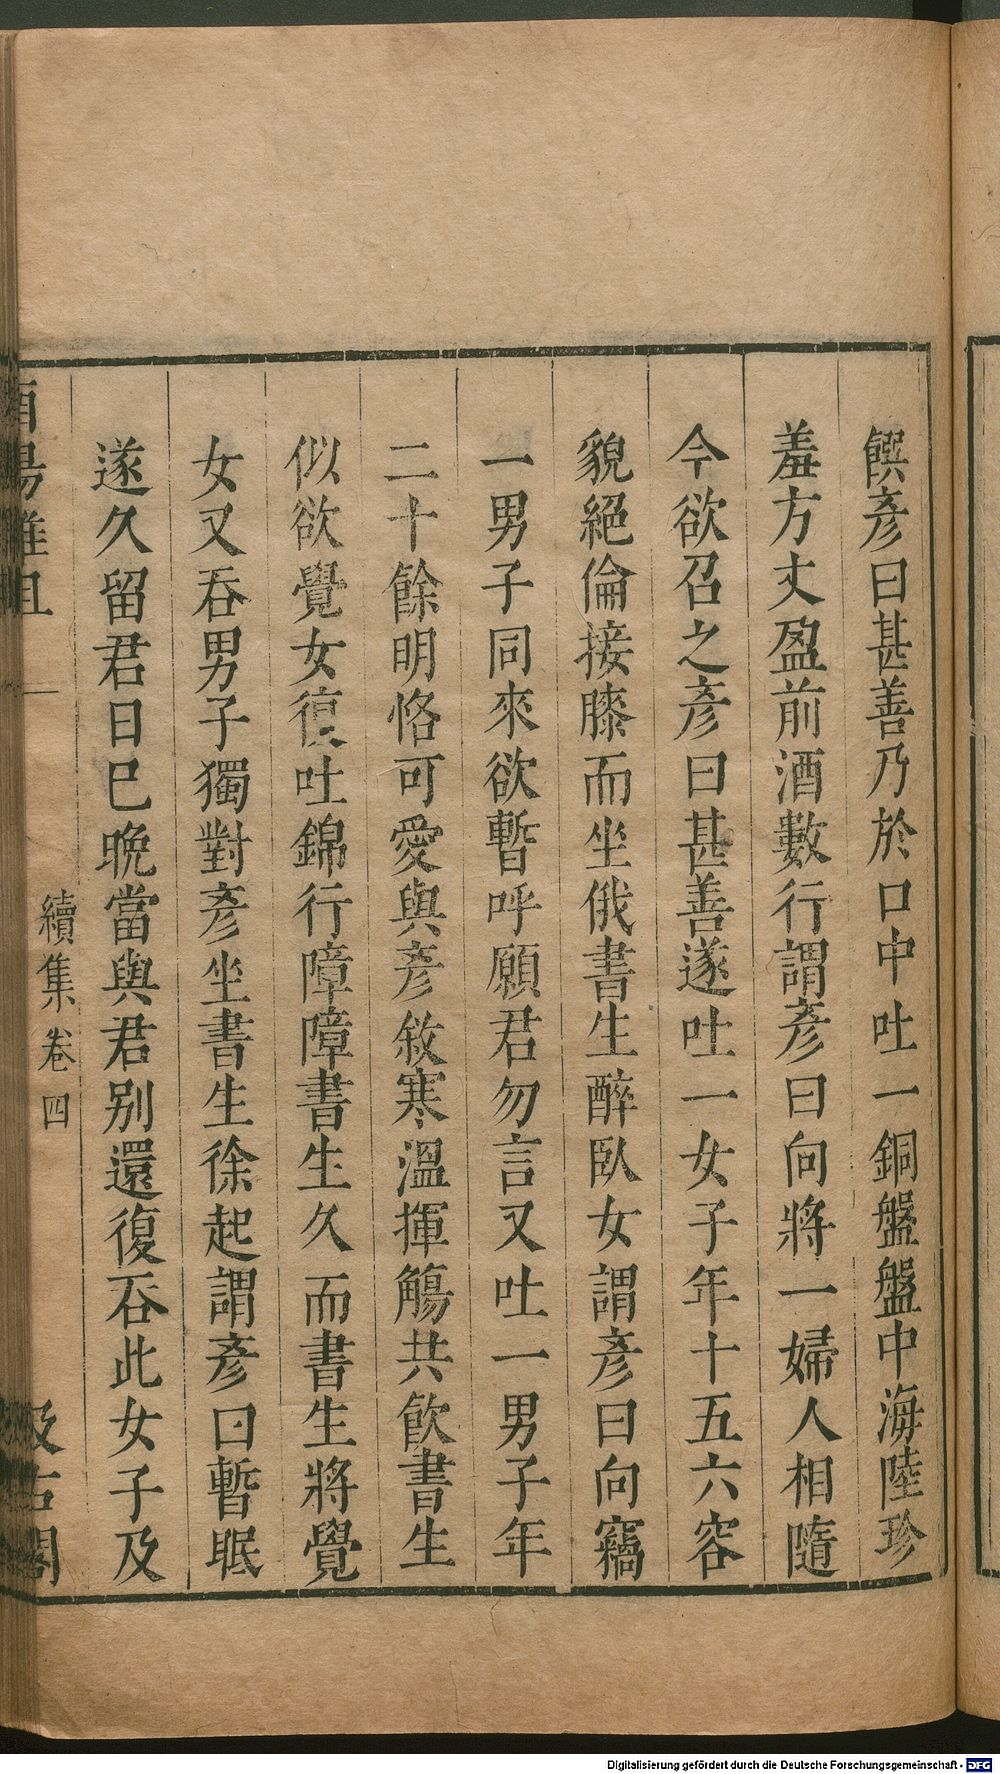 饌彥曰甚善乃於口中吐一銅盤盤中海陸珍
羞方丈盈前酒數行謂彥曰向將一婦人相隨
今欲召之彥曰甚善遂吐一女子年十五六容
貌絕倫接膝而坐俄書生醉臥女謂彥曰向竊
一男子同來欲暫呼願君勿言又吐一男子年
二十餘明恪可愛與彥敘寒溫揮觴共飮書生
似欲覺女復吐錦行障障書生久而書生將覺
女又吞男子獨對彥坐書生徐起謂彥曰暫眠
遂久留君日巳晚當與君别還復吞此女子及
酉陽雜俎
續集卷四
汲古閣
Digitalisierung gefördert durch die Deutsche Forschungsgemeinschaft - DFG